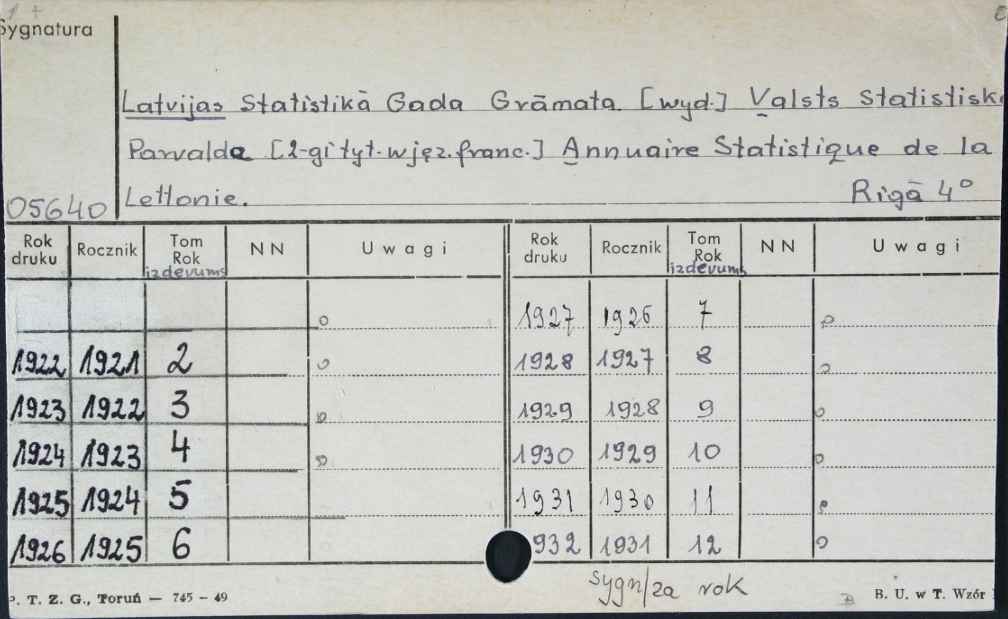 Sygnatura
Latvijas Statistikā Gada Grāmata. [wyd.] Valsts Statistisk
Parvalde [2-gi tyt. w jęz. franc.] Annuaire Statistique de la
Lettonie. Rigā 4°
05640
Rok druku Rocznik Tom Rok izdevums NN Uwagi Rok druku Rocznik Tom Rok izdevums NN Uwagi
1927 1926 7
1922 1921 2 1928 1927 8
1923 1922 3 1929 1928 9
1924 1923 4 1930 1929 10
1925 1924 5 1931 1930 11
1926 1925 6 932 1931 12
sygn/za rok
P. T. Z. G., Toruń — 745 – 49 B. U. w T. Wzór